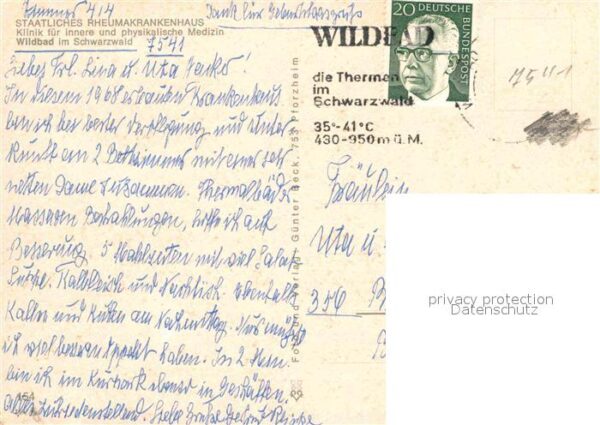 Zimmer 414
Dank für Geburtstagsgrüße
STAATLICHES RHEUMAKRANKENHAUS
Klinik für innere und physikalische Medizin
Wildbad im Schwarzwald
7541
WILDBAD
die Thermen
im
Schwarzwald
35°-41°C
430-950m ü.M.
20
DEUTSCHE
BUNDESPOST
7541
Liebes Frl. Lina u. Uta
In diesem 1968 erbauten Krankenhaus
bin ich bei bester Verpflegung und Unter
kunft am 2 Bettzimmer mit einer sehr
netten Dame zusammen. Thermalbäder
Massagen Bestrahlungen, hoffe ich auf
Besserung. 5 Mahlzeiten mit viel Salat
Suppe, Kalbfleisch und Nachtisch ebenfalls
Kaffee und Kuchen am Nachmittag.
ich viel besseren Appetit haben. In 2 Min.
bin ich im Kurpark ebenso in Geschäften.
Alles zufriedenstellend. Liebe Grüße
Foto und Verlag: Günter Beck, 753 Pforzheim
164
Fräulein
Uta u.
356 B
privacy protection
Datenschutz